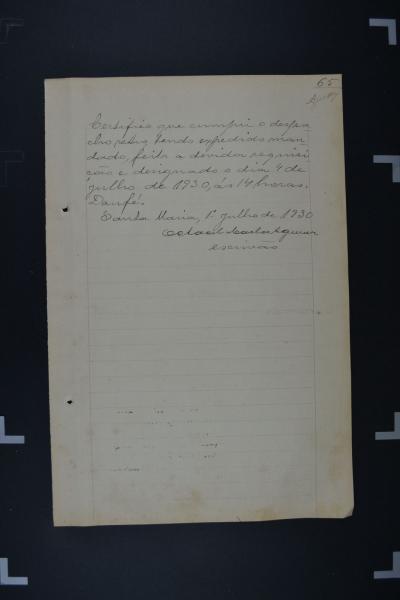 65
Certifico que cumpri o despa-
cho retro, tendo expedido man-
dado, feito a devida requisi-
ção e designado o dia 4 de
julho de 1930, ás 14 horas.
Dou fé.
Santa Maria, 1º julho de 1930
escrivão